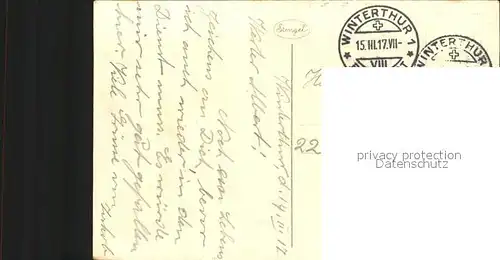 Winterthur, d. 14. III. 17
Vater Albert!
Noch ein Lebens-
zeichen an Dich, bevor
ich auch wieder in den
Dienst muss. Es würde
mir sehr gut gefallen
hier. Viele Grüsse von
Stengel
WINTERTHUR 1
15.III.17.VII-
VIII
WINTERTHUR
22
privacy protection
Datenschutz